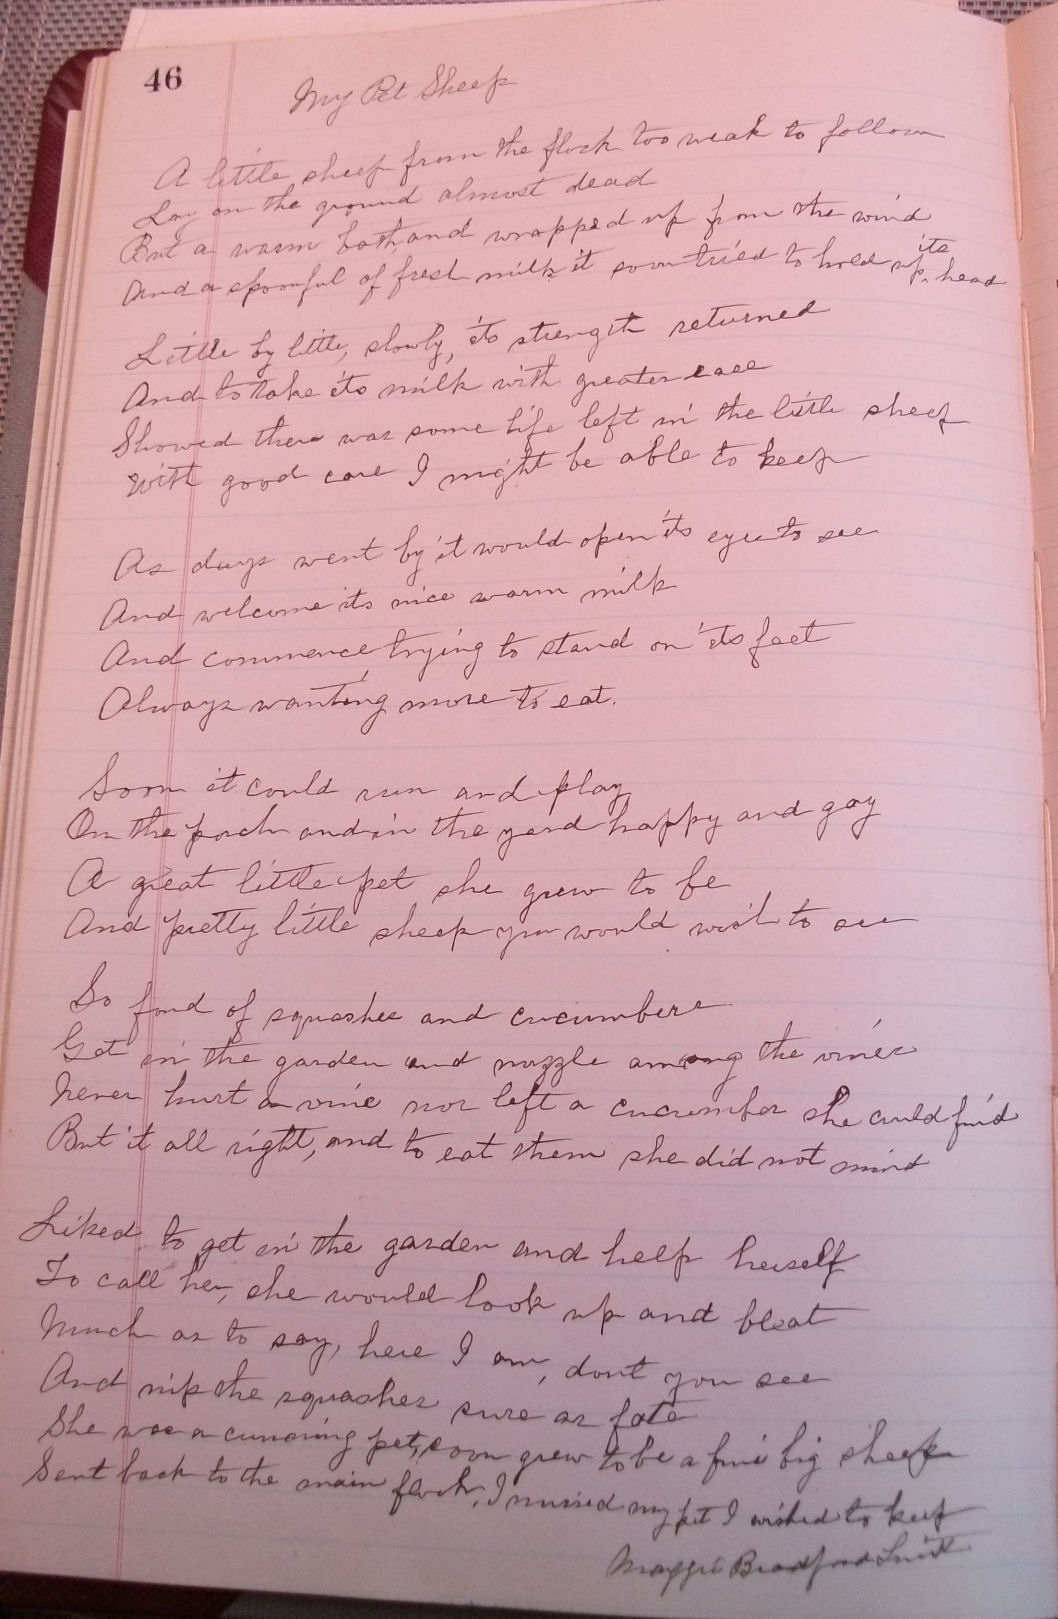 46
My Pet Sheep
A little sheep from the flock too weak to follow
Lay on the ground almost dead
But a warm bath, and wrapped up from the wind
And a spoonful of fresh milk it soon tried to hold up its head
Little by little, slowly, its strength returned
And to take its milk with greater ease
Showed there was some life left in the little sheep
With good care I might be able to keep
As days went by it would open its eyes to see
And welcome its nice warm milk
And commence trying to stand on its feet
Always wanting more to eat.
Soon it could run and play
On the porch and in the yard happy and gay
A great little pet she grew to be
And pretty little sheep you would wish to see
So fond of squashes and cucumbers
Get in the garden and nozzle among the vines
Never hurt a vine nor left a cucumber she could find
But it all right, and to eat them she did not mind
Liked to get in the garden and help herself
To call her, she would look up and bleat
Much as to say, here I am, dont you see
And nip the squashes sure as fate
She was a cunning pet, soon grew to be a fine big sheep
Sent back to the main flock, I missed my pet I wished to keep
Maggie Bradford Smith